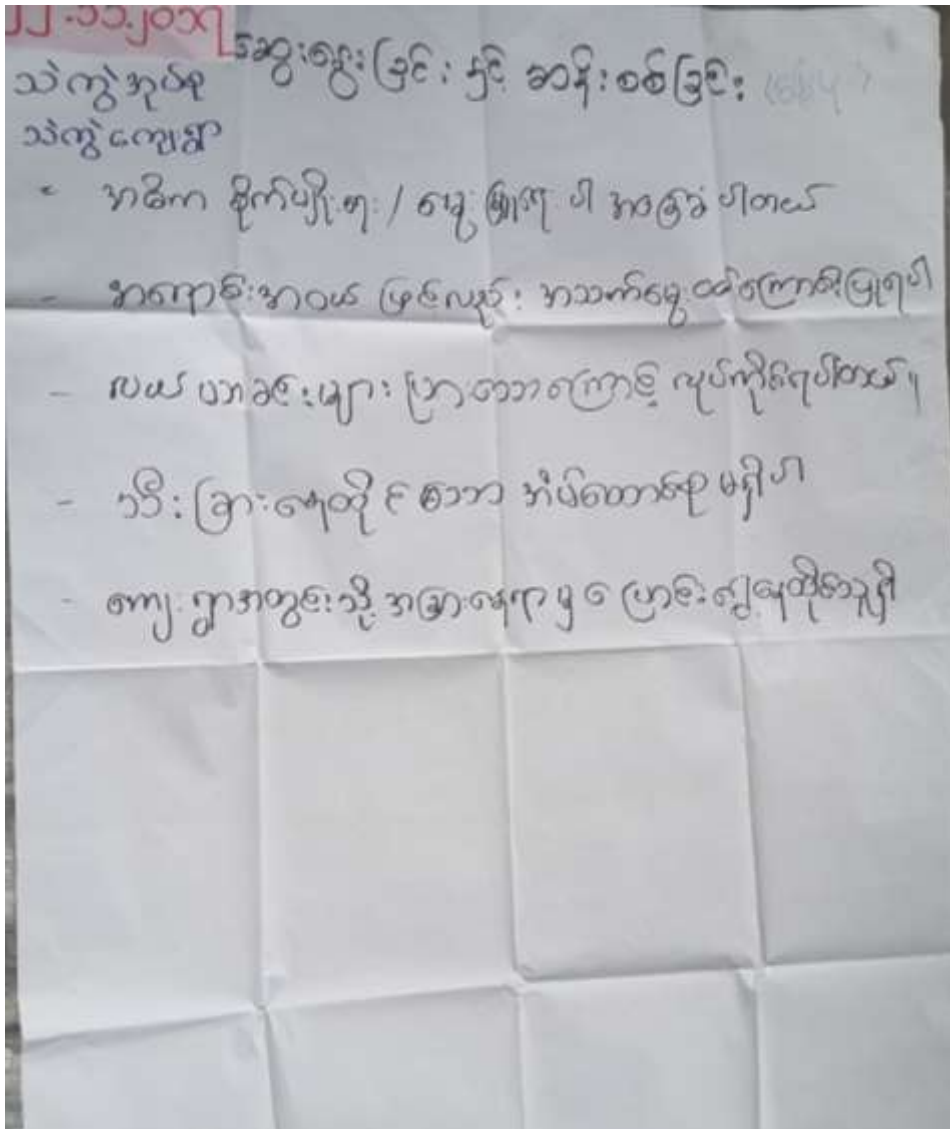 ၂၂.၁၁.၂၀၁၇
ဆွေးနွေးခြင်း နှင့် ဆန်းစစ်ခြင်း
သဲကွဲအုပ်စု
သဲကွဲကျေးရွာ
- အဓိက စိုက်ပျိုးရေး / မွေးမြူရေး ပါ အခြေခံ ပါတယ်
- အရောင်းအဝယ် ဖြင့်လည်း အသက်မွေး ဝမ်းကြောင်းပြုရပါ
- လယ် များ ကြောင့် လုပ်ကိုင်ရပါတယ်။
- သီးခြားနေထိုင်သော အိမ်ထောင်စု မရှိပါ
- ကျေးရွာအတွင်းသို့ အခြားနေရာမှ ပြောင်းရွှေ့နေထိုင်သူရှိ